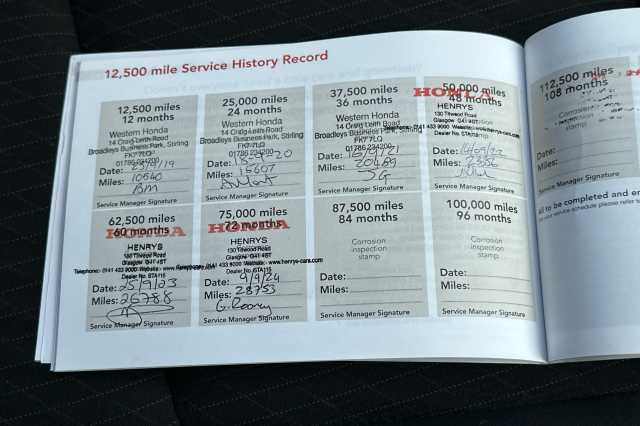 12,500 mile Service History Record
12,500 miles
12 months
Western Honda
14 Craig Leith Road
Broadleys Business Park, Stirling
FK7 7LQ
01786 234200
Date:
Miles: 10540
BM
Service Manager Signature
25,000 miles
24 months
Western Honda
14 Craig Leith Road
Broadleys Business Park, Stirling
FK7 7LQ
01786 234200
Date:
Miles: 15607
Service Manager Signature
37,500 miles
36 months
Western Honda
14 Craig Leith Road
Broadleys Business Park, Stirling
FK7 7LQ
01786 234200
Date:
Miles:
JG
Service Manager Signature
50,000 miles
HONDA
48 months
HENRYS
130 Titwood Road
Glasgow G41 4BT
Telephone:- 0141 433 9000 Website:- www.henrys-cars.com
Dealer No. STA115
Date:
Miles:
Service Manager Signature
62,500 miles
HONDA
60 months
HENRYS
130 Titwood Road
Glasgow G41 4BT
Telephone:- 0141 433 9000 Website:- www.henrys-cars.com
Dealer No. STA115
Date: 25/9/03
Miles: 26788
Service Manager Signature
75,000 miles
HONDA
72 months
HENRYS
130 Titwood Road
Glasgow G41 4BT
Telephone:- 0141 433 9000 Website:- www.henrys-cars.com
Dealer No. STA115
Date: 9/9/24
Miles: 28753
G. Rooney
Service Manager Signature
87,500 miles
84 months
Corrosion
inspection
stamp
Date:
Miles:
Service Manager Signature
100,000 miles
96 months
Corrosion
inspection
stamp
Date:
Miles:
Service Manager Signature
112,500 miles
108 months
Corrosion
inspection
stamp
Date:
Miles:
Service Manager Signature
to be completed and
your service schedule please refer